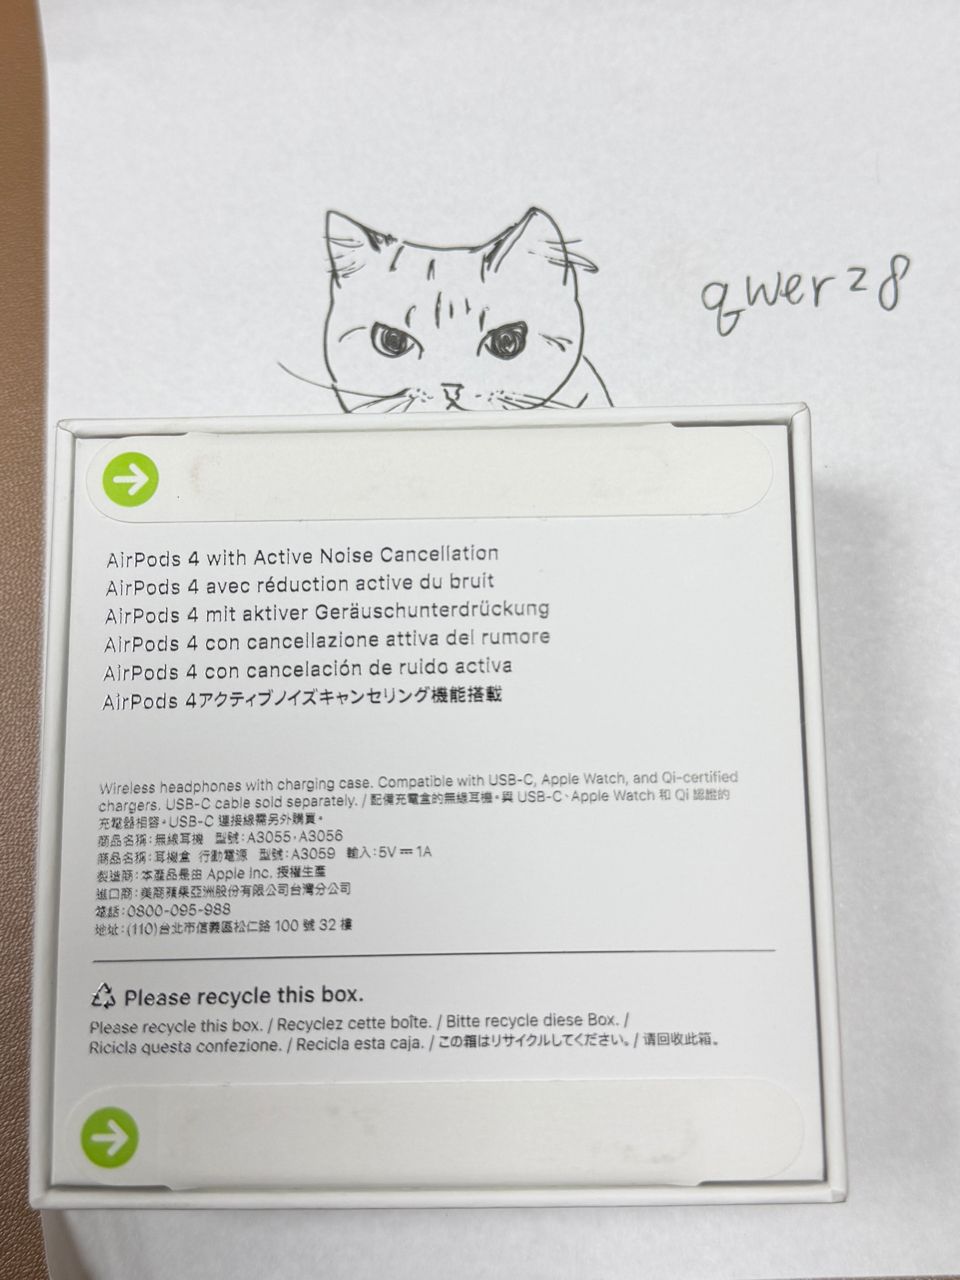 qwerz8
AirPods 4 with Active Noise Cancellation
AirPods 4 avec réduction active du bruit
AirPods 4 mit aktiver Geräuschunterdrückung
AirPods 4 con cancellazione attiva del rumore
AirPods 4 con cancelación de ruido activa
AirPods 4アクティブノイズキャンセリング機能搭載
Wireless headphones with charging case. Compatible with USB-C, Apple Watch, and Qi-certified
chargers. USB-C cable sold separately. / 配備充電盒的無線耳機。與 USB-C、Apple Watch 和 Qi 認證的
充電器相容。USB-C 連接線需另外購買。
商品名稱：無線耳機 型號：A3055、A3056
商品名稱：耳機盒 行動電源 型號：A3059 輸入：5V⎓1A
製造商：本產品是由 Apple Inc. 授權生產
進口商：美商蘋果亞洲股份有限公司台灣分公司
電話：0800-095-988
地址：(110)台北市信義區松仁路 100 號 32 樓
Please recycle this box.
Please recycle this box. / Recyclez cette boîte. / Bitte recycle diese Box. /
Ricicla questa confezione. / Recicla esta caja. / この箱はリサイクルしてください。/ 请回收此箱。